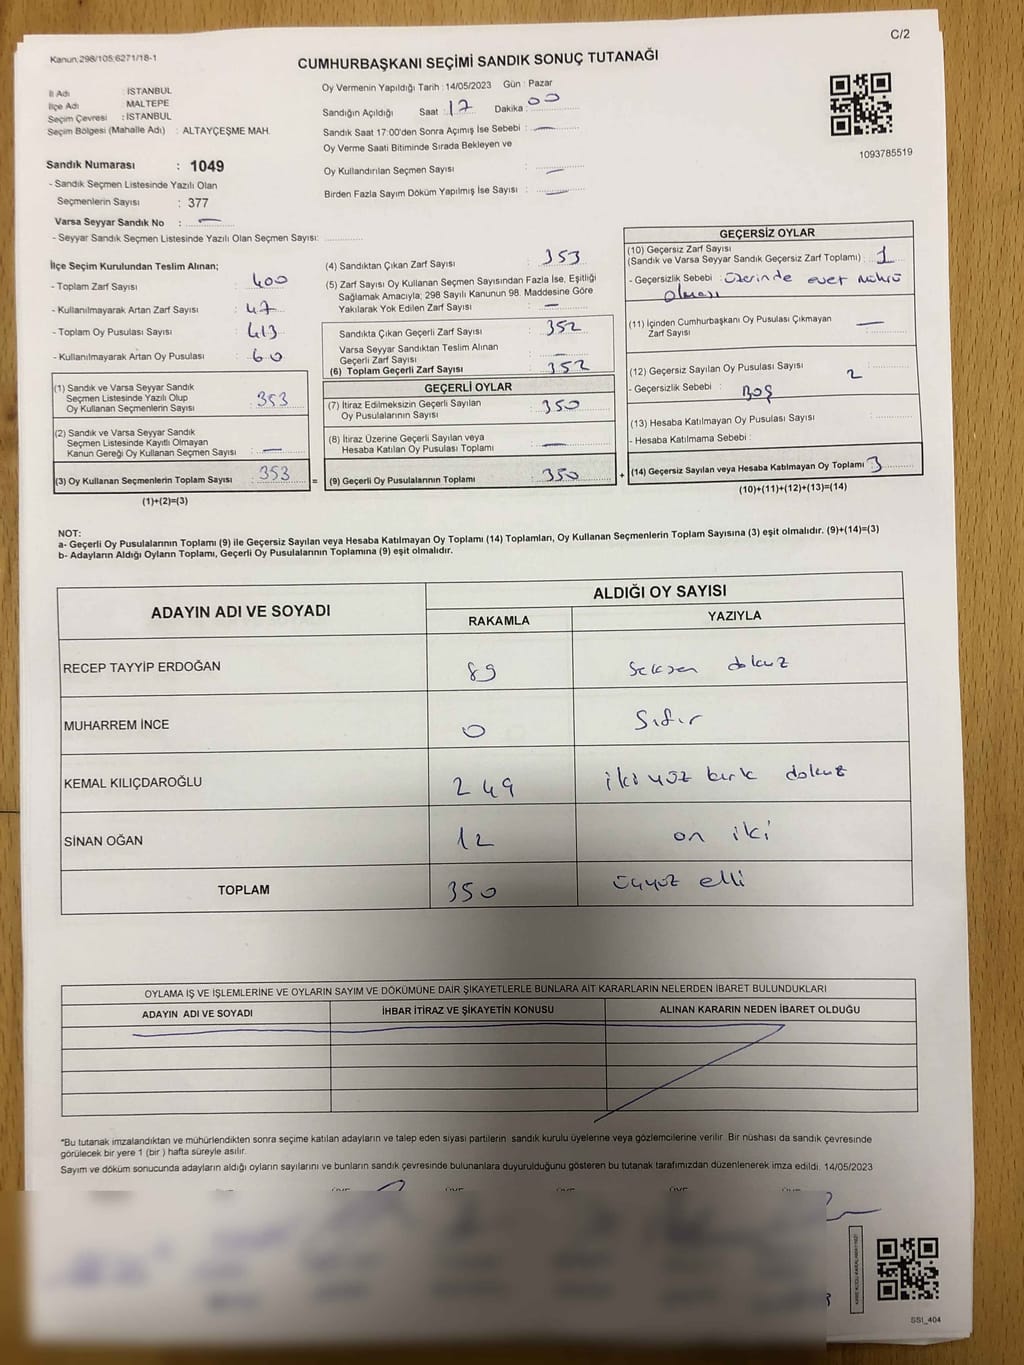 C/2
Kanun:298/105;6271/18-1
CUMHURBAŞKANI SEÇİMİ SANDIK SONUÇ TUTANAĞI
İl Adı : İSTANBUL
İlçe Adı : MALTEPE
Seçim Çevresi : İSTANBUL
Seçim Bölgesi (Mahalle Adı) : ALTAYÇEŞME MAH.
Oy Vermenin Yapıldığı Tarih : 14/05/2023 Gün : Pazar
Sandığın Açıldığı Saat : 17 Dakika : 00
Sandık Saat 17:00'den Sonra Açımış İse Sebebi : —
Oy Verme Saati Bitiminde Sırada Bekleyen ve
Oy Kullandırılan Seçmen Sayısı : —
Birden Fazla Sayım Döküm Yapılmış İse Sayısı : —
1093785519
Sandık Numarası : 1049
- Sandık Seçmen Listesinde Yazılı Olan
Seçmenlerin Sayısı : 377
Varsa Seyyar Sandık No : —
- Seyyar Sandık Seçmen Listesinde Yazılı Olan Seçmen Sayısı:
İlçe Seçim Kurulundan Teslim Alınan;
- Toplam Zarf Sayısı : 400
- Kullanılmayarak Artan Zarf Sayısı : 47
- Toplam Oy Pusulası Sayısı : 413
- Kullanılmayarak Artan Oy Pusulası : 60
(1) Sandık ve Varsa Seyyar Sandık
Seçmen Listesinde Yazılı Olup
Oy Kullanan Seçmenlerin Sayısı : 353
(2) Sandık ve Varsa Seyyar Sandık
Seçmen Listesinde Kayıtlı Olmayan
Kanun Gereği Oy Kullanan Seçmen Sayısı : —
(3) Oy Kullanan Seçmenlerin Toplam Sayısı : 353 =
(1)+(2)=(3)
(4) Sandıktan Çıkan Zarf Sayısı : 353
(5) Zarf Sayısı Oy Kullanan Seçmen Sayısından Fazla İse, Eşitliği
Sağlamak Amacıyla; 298 Sayılı Kanunun 98. Maddesine Göre
Yakılarak Yok Edilen Zarf Sayısı : —
Sandıkta Çıkan Geçerli Zarf Sayısı : 352
Varsa Seyyar Sandıktan Teslim Alınan
Geçerli Zarf Sayısı : —
(6) Toplam Geçerli Zarf Sayısı : 352
GEÇERLİ OYLAR
(7) İtiraz Edilmeksizin Geçerli Sayılan
Oy Pusulalarının Sayısı : 350
(8) İtiraz Üzerine Geçerli Sayılan veya
Hesaba Katılan Oy Pusulası Toplamı : —
(9) Geçerli Oy Pusulalarının Toplamı : 350 +
GEÇERSİZ OYLAR
(10) Geçersiz Zarf Sayısı
(Sandık ve Varsa Seyyar Sandık Geçersiz Zarf Toplamı) : 1
- Geçersizlik Sebebi : üzerinde evet mührü
olması
(11) İçinden Cumhurbaşkanı Oy Pusulası Çıkmayan
Zarf Sayısı : —
(12) Geçersiz Sayılan Oy Pusulası Sayısı : 2
- Geçersizlik Sebebi : Boş
(13) Hesaba Katılmayan Oy Pusulası Sayısı :
- Hesaba Katılmama Sebebi :
(14) Geçersiz Sayılan veya Hesaba Katılmayan Oy Toplamı : 3
(10)+(11)+(12)+(13)=(14)
NOT:
a- Geçerli Oy Pusulalarının Toplamı (9) ile Geçersiz Sayılan veya Hesaba Katılmayan Oy Toplamı (14) Toplamları, Oy Kullanan Seçmenlerin Toplam Sayısına (3) eşit olmalıdır. (9)+(14)=(3)
b- Adayların Aldığı Oyların Toplamı, Geçerli Oy Pusulalarının Toplamına (9) eşit olmalıdır.
ADAYIN ADI VE SOYADI ALDIĞI OY SAYISI
RAKAMLA YAZIYLA
RECEP TAYYİP ERDOĞAN 89 Seksen dokuz
MUHARREM İNCE 0 Sıfır
KEMAL KILIÇDAROĞLU 249 iki yüz kırk dokuz
SİNAN OĞAN 12 on iki
TOPLAM 350 üçyüz elli
OYLAMA İŞ VE İŞLEMLERİNE VE OYLARIN SAYIM VE DÖKÜMÜNE DAİR ŞİKAYETLERLE BUNLARA AİT KARARLARIN NELERDEN İBARET BULUNDUKLARI
ADAYIN ADI VE SOYADI İHBAR İTİRAZ VE ŞİKAYETİN KONUSU ALINAN KARARIN NEDEN İBARET OLDUĞU
*Bu tutanak imzalandıktan ve mühürlendikten sonra seçime katılan adayların ve talep eden siyasi partilerin sandık kurulu üyelerine veya gözlemcilerine verilir. Bir nüshası da sandık çevresinde
görülecek bir yere 1 (bir ) hafta süreyle asılır.
Sayım ve döküm sonucunda adayların aldığı oyların sayılarını ve bunların sandık çevresinde bulunanlara duyurulduğunu gösteren bu tutanak tarafımızdan düzenlenerek imza edildi. 14/05/2023
SSİ_404